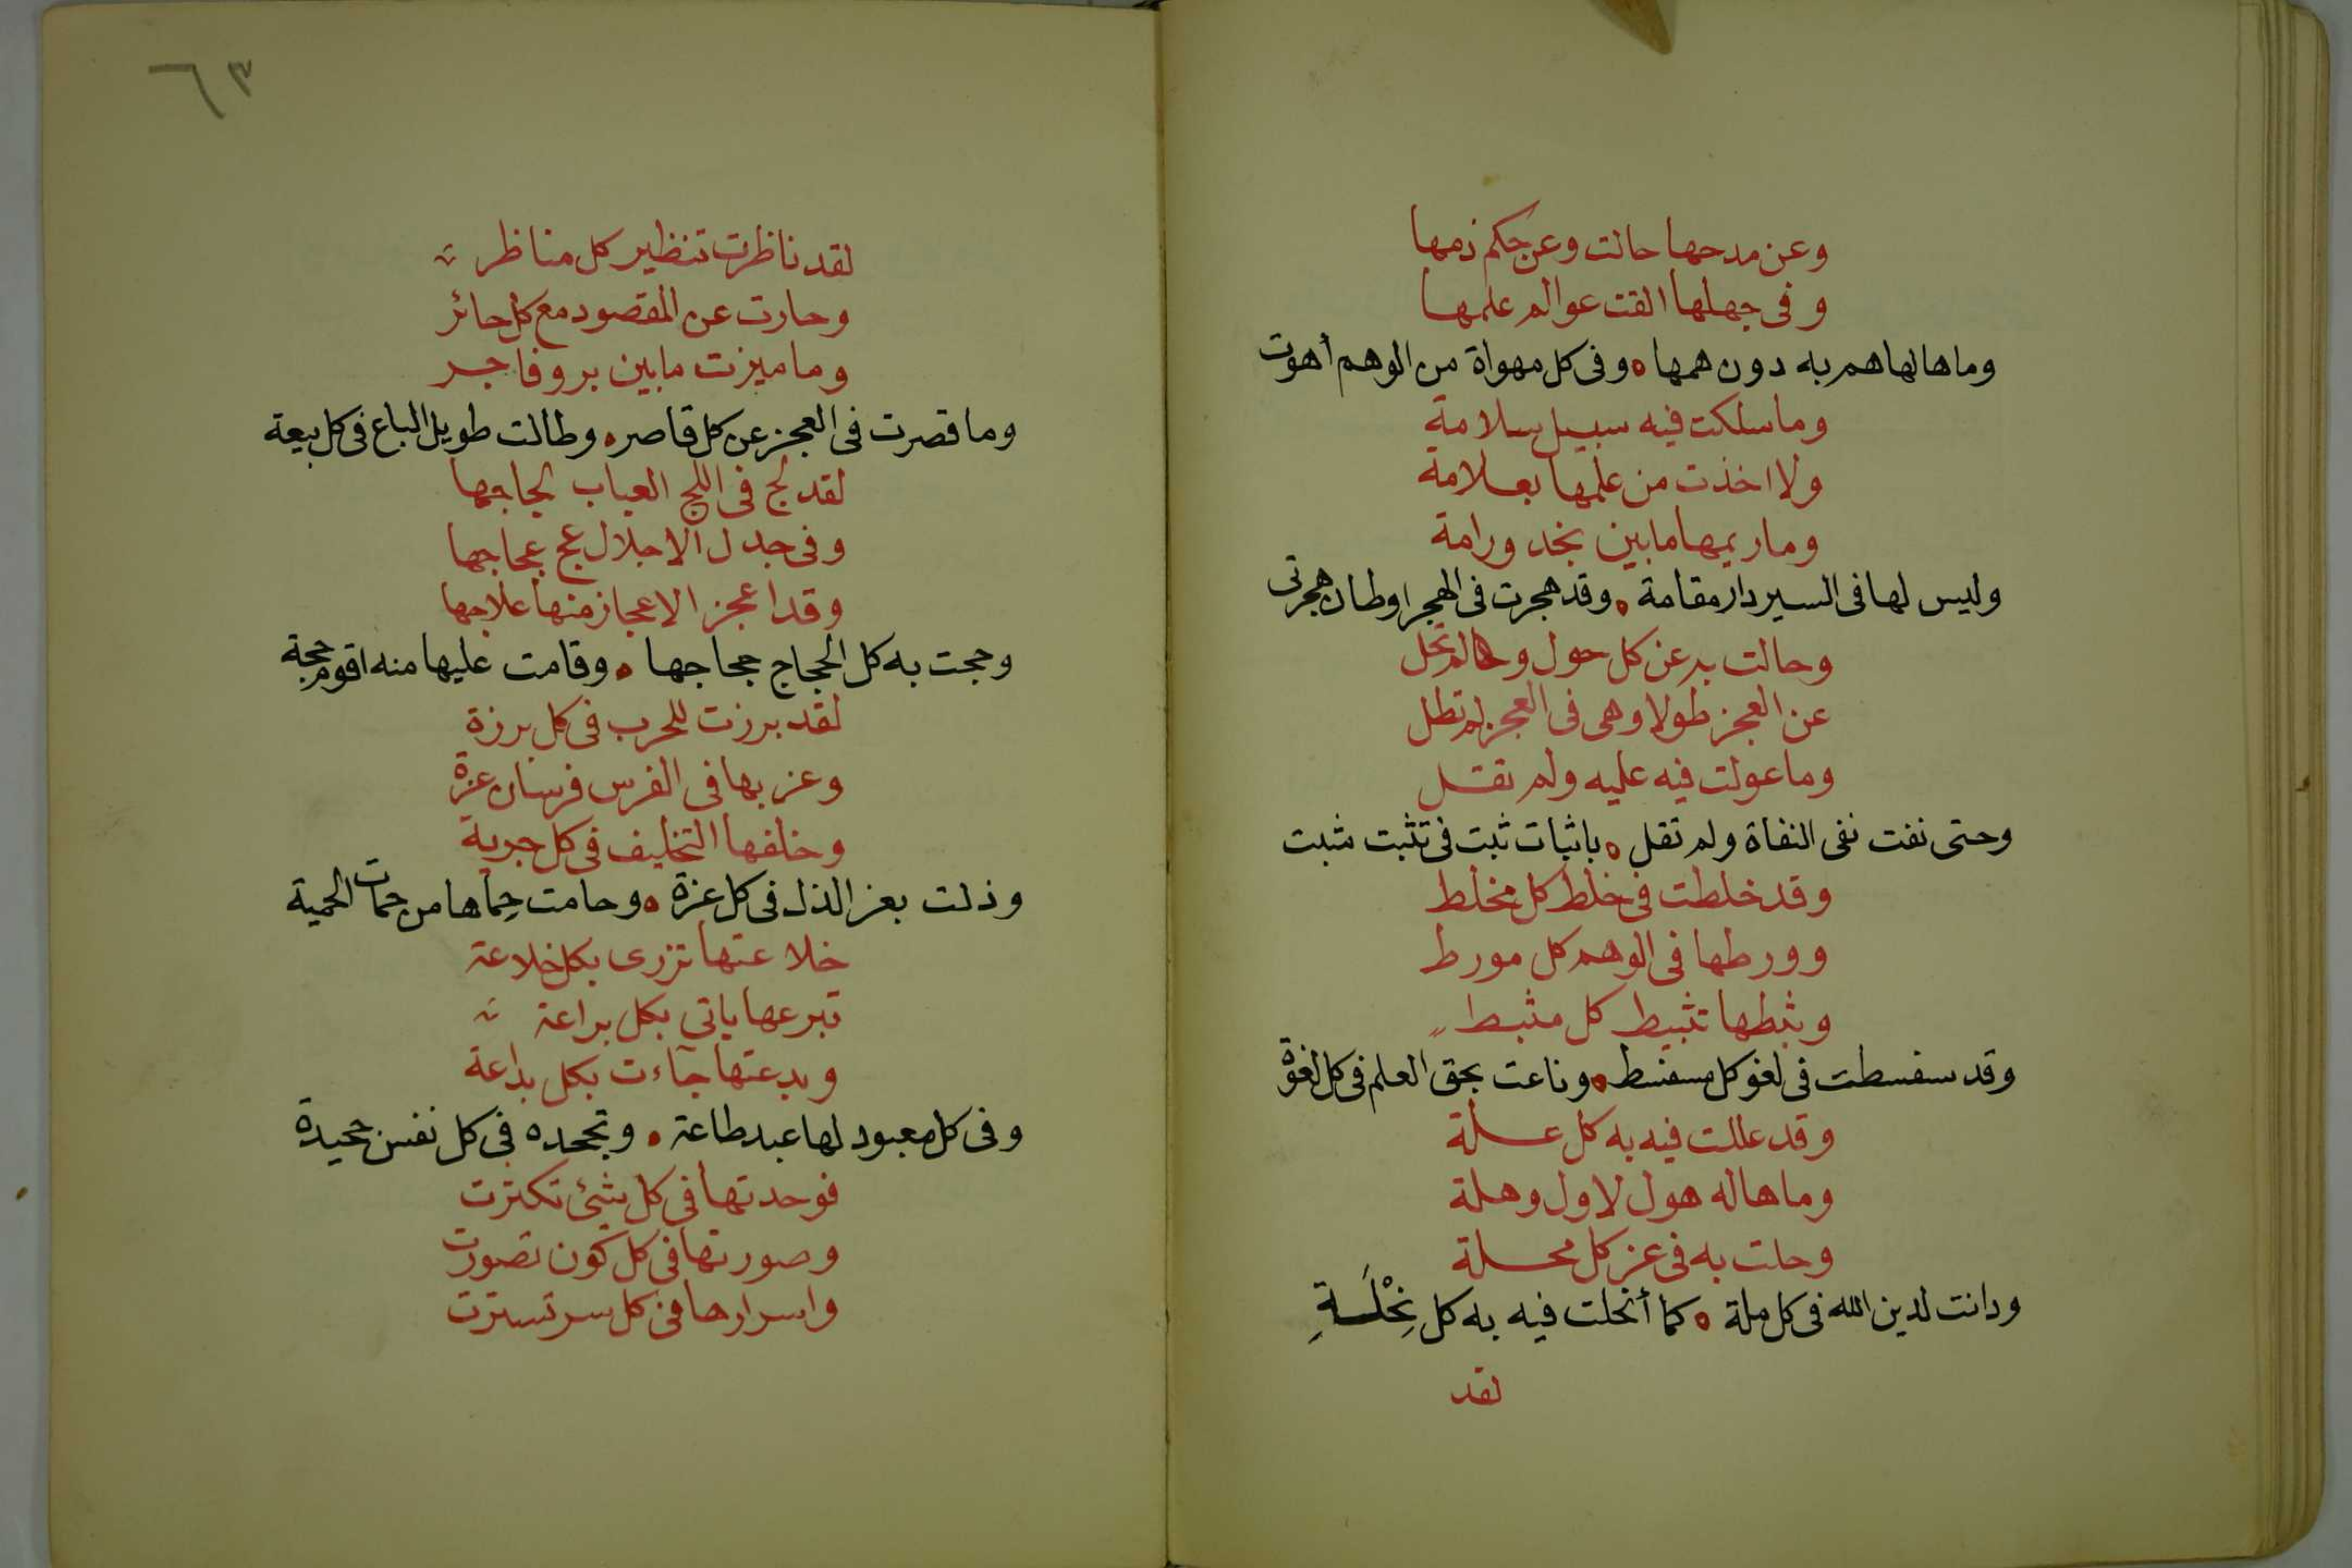 وعن مدحها حالت وعن حكم ذمها
وفى جهلها القت عوالم علمها
وما هالها هم به دون همها ه وفى كل مهواة من الوهم أهوت
وما سلكت فيه سبيل سلامة
ولا اخذت من علمها بعلامة
وما ريمها ما بين نجد ورامة
وليس لها فى السير دار مقامة ه وقد هجرت فى الهجر اوطان هجرتى
وحالت به عن كل حول وما لم تحل
عن العجز طولا وهى فى العجز لم تطل
وما عولت فيه عليه ولم تقل
وحتى نفت نفى النفاة ولم تقل ه باثبات ثبت فى تثبت مثبت
وقد خلطت فى خلط كل مخلط
وورطها فى الوهم كل مورط
وثبطها تثبيط كل مثبط
وقد سفسطت فى لغو كل مسفسط ه وناعت بحق العلم فى كل لغوة
وقد عللت فيه به كل علة
وما هاله هول لاول وهلة
وحلت به فى عز كل محلة
ودانت لدين الله فى كل ملة ه كما أنحلت فيه به كل نِحْلَةِ
لقد
٦٣
لقد ناظرت تنظير كل مناظر
وحارت عن المقصود مع كل حائر
وما ميزت ما بين بر وفاجر
وما قصرت فى العجز عن كل قاصر ه وطالت طويل الباع فى كل بيعة
لقد لج فى اللج العباب لجاجها
وفى جدل الاجلال عج عجاجها
وقد اعجز الاعجاز منها علاجها
وحجت به كل الحجاج حجاجها ه وقامت عليها منه اقوم حجة
لقد برزت للحرب فى كل برزة
وعز بها فى الفرس فرسان عزة
وخلفها التخليف فى كل
وذلت بعز الذل فى كل عزة ه وحامت حِماها من حمات الحمية
خلاعتها تزرى بكل خلاعة
تبرعها ياتى بكل براعة
وبدعتها جآءت بكل بداعة
وفى كل معبود لها عبد طاعة ه وتجحده فى كل نفس جحيدة
فوحدتها فى كل شئ تكثرت
وصورتها فى كل كون تصورت
واسرارها فى كل سر تسترت